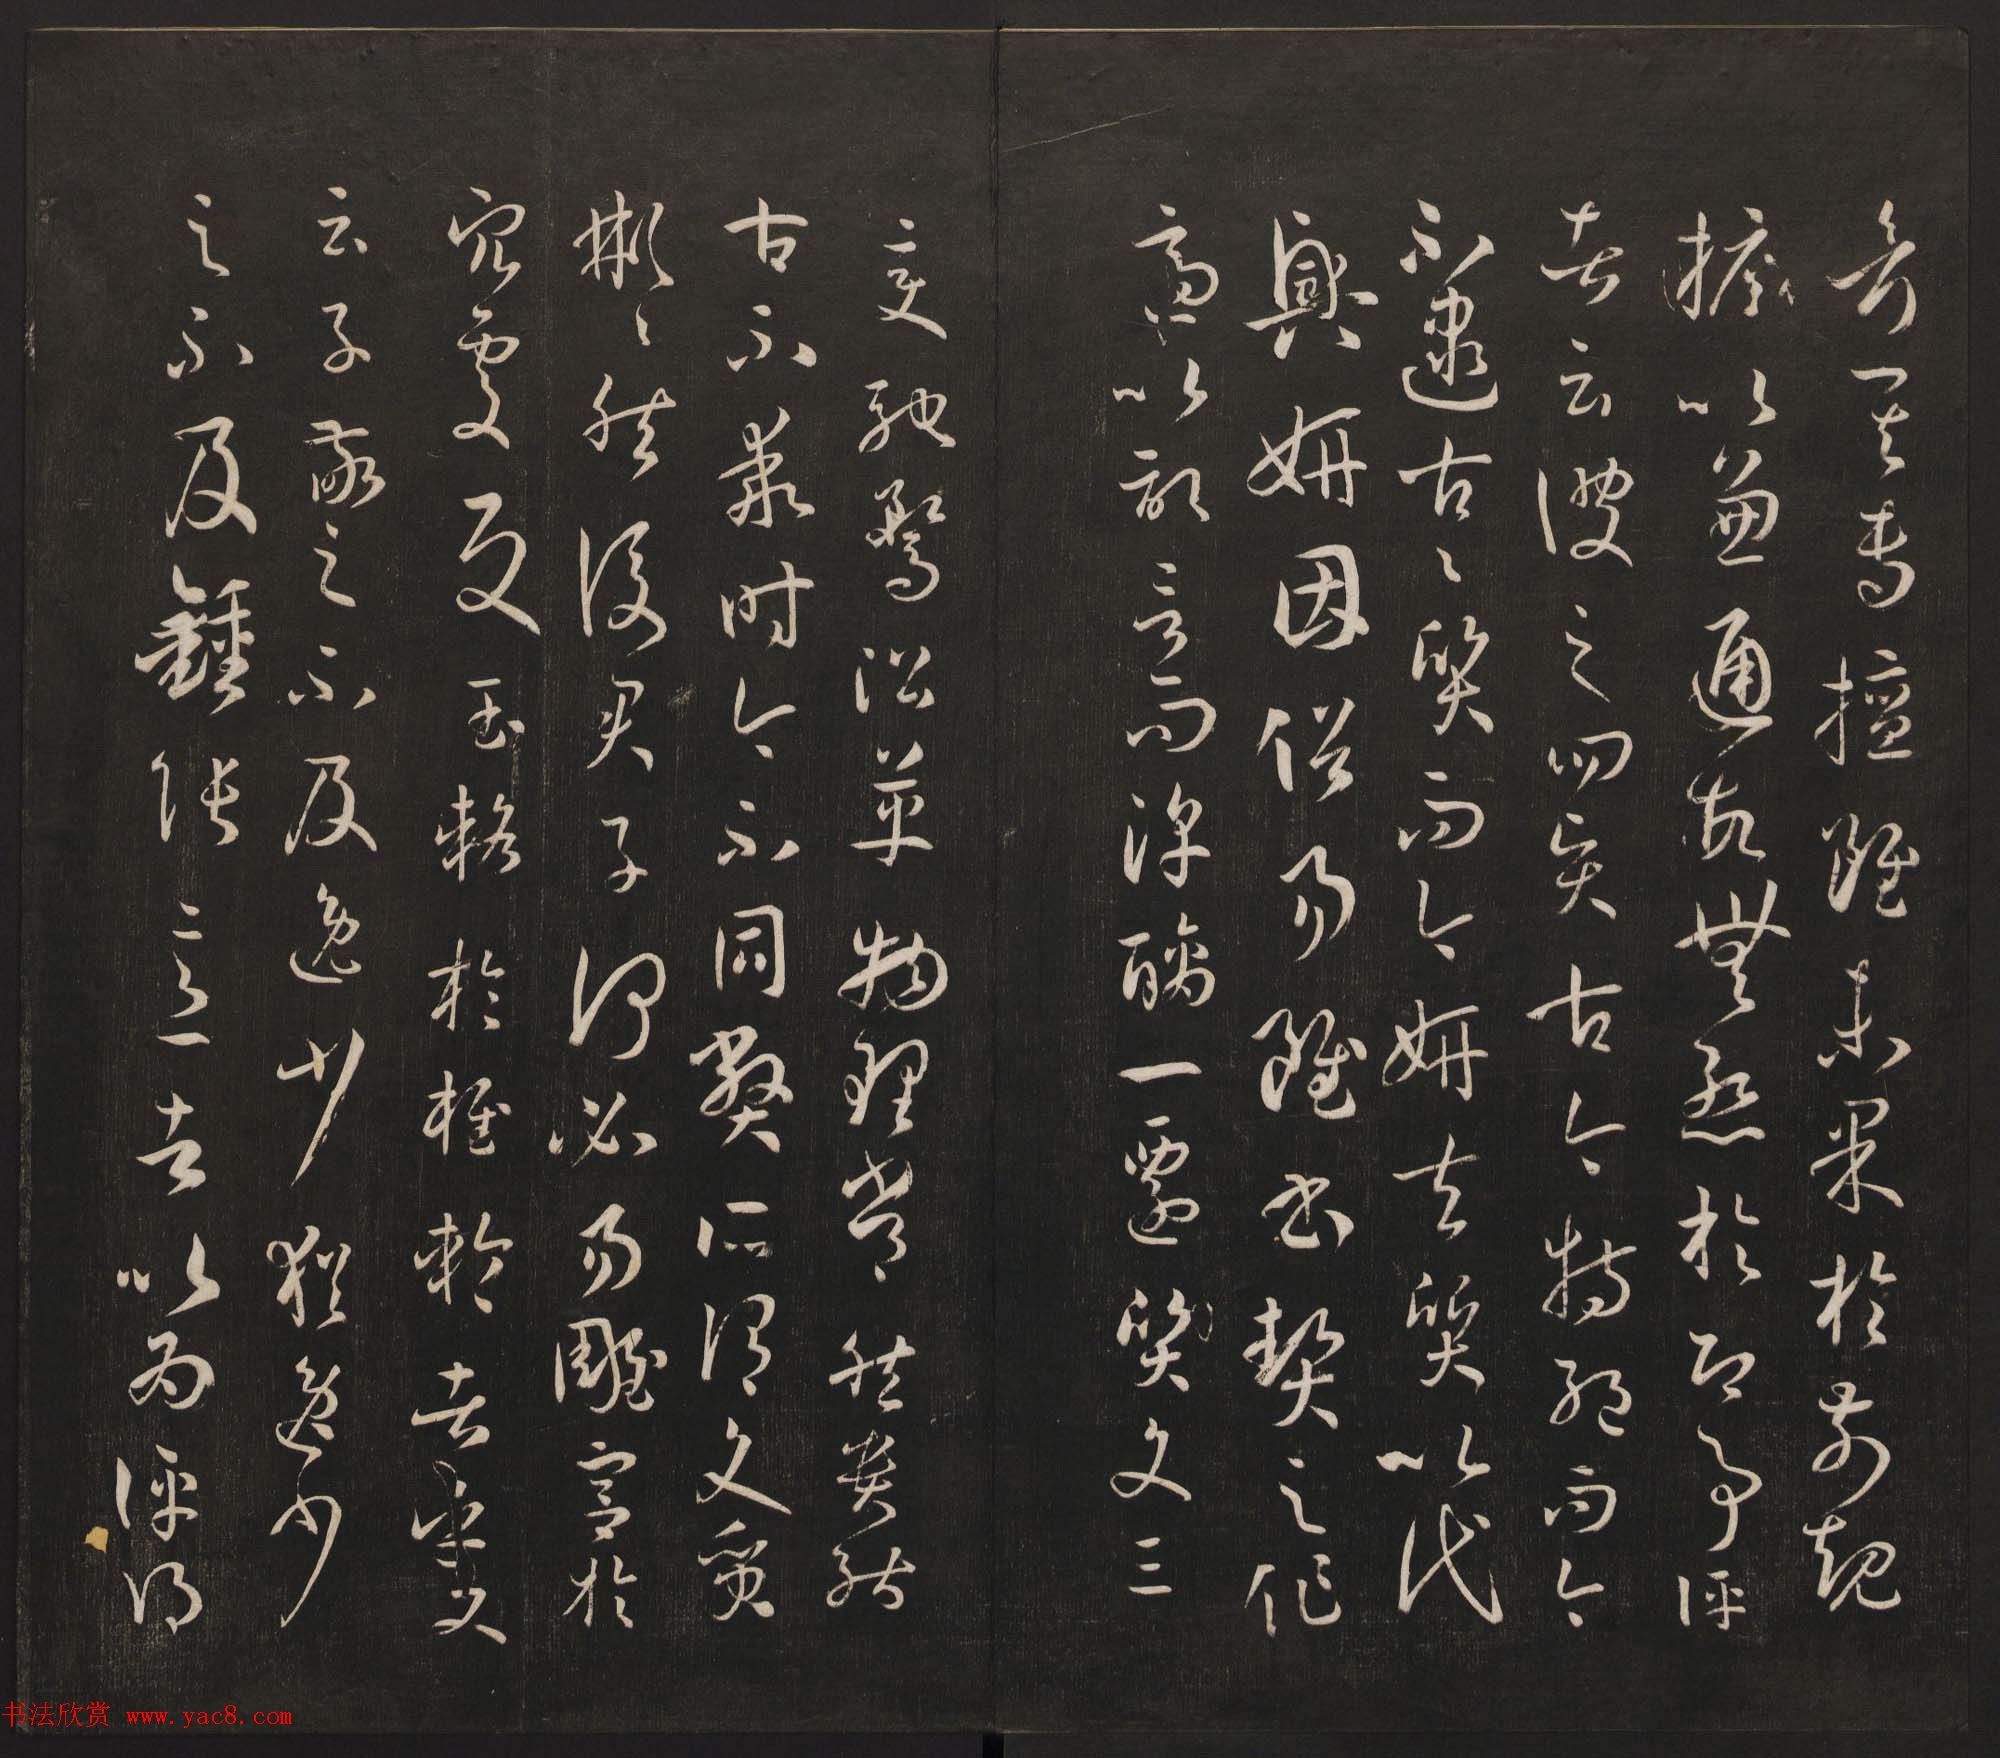 考其專擅雖未果於前規
摭以兼通故無慚於即事評
者云彼之四賢古今特絕而今
不逮古々質而今妍夫質以代
興妍因俗易雖書契之作
適以記言而淳醨一遷質文三
變馳騖沿革物理常然貴能
古不乖時今不同弊所謂文質
彬々然後君子何必易雕宮於
穴處反玉輅於椎輪者乎又
云子敬之不及逸少猶逸少
之不及鍾張意者以為評得
书法欣赏 www.yac8.com